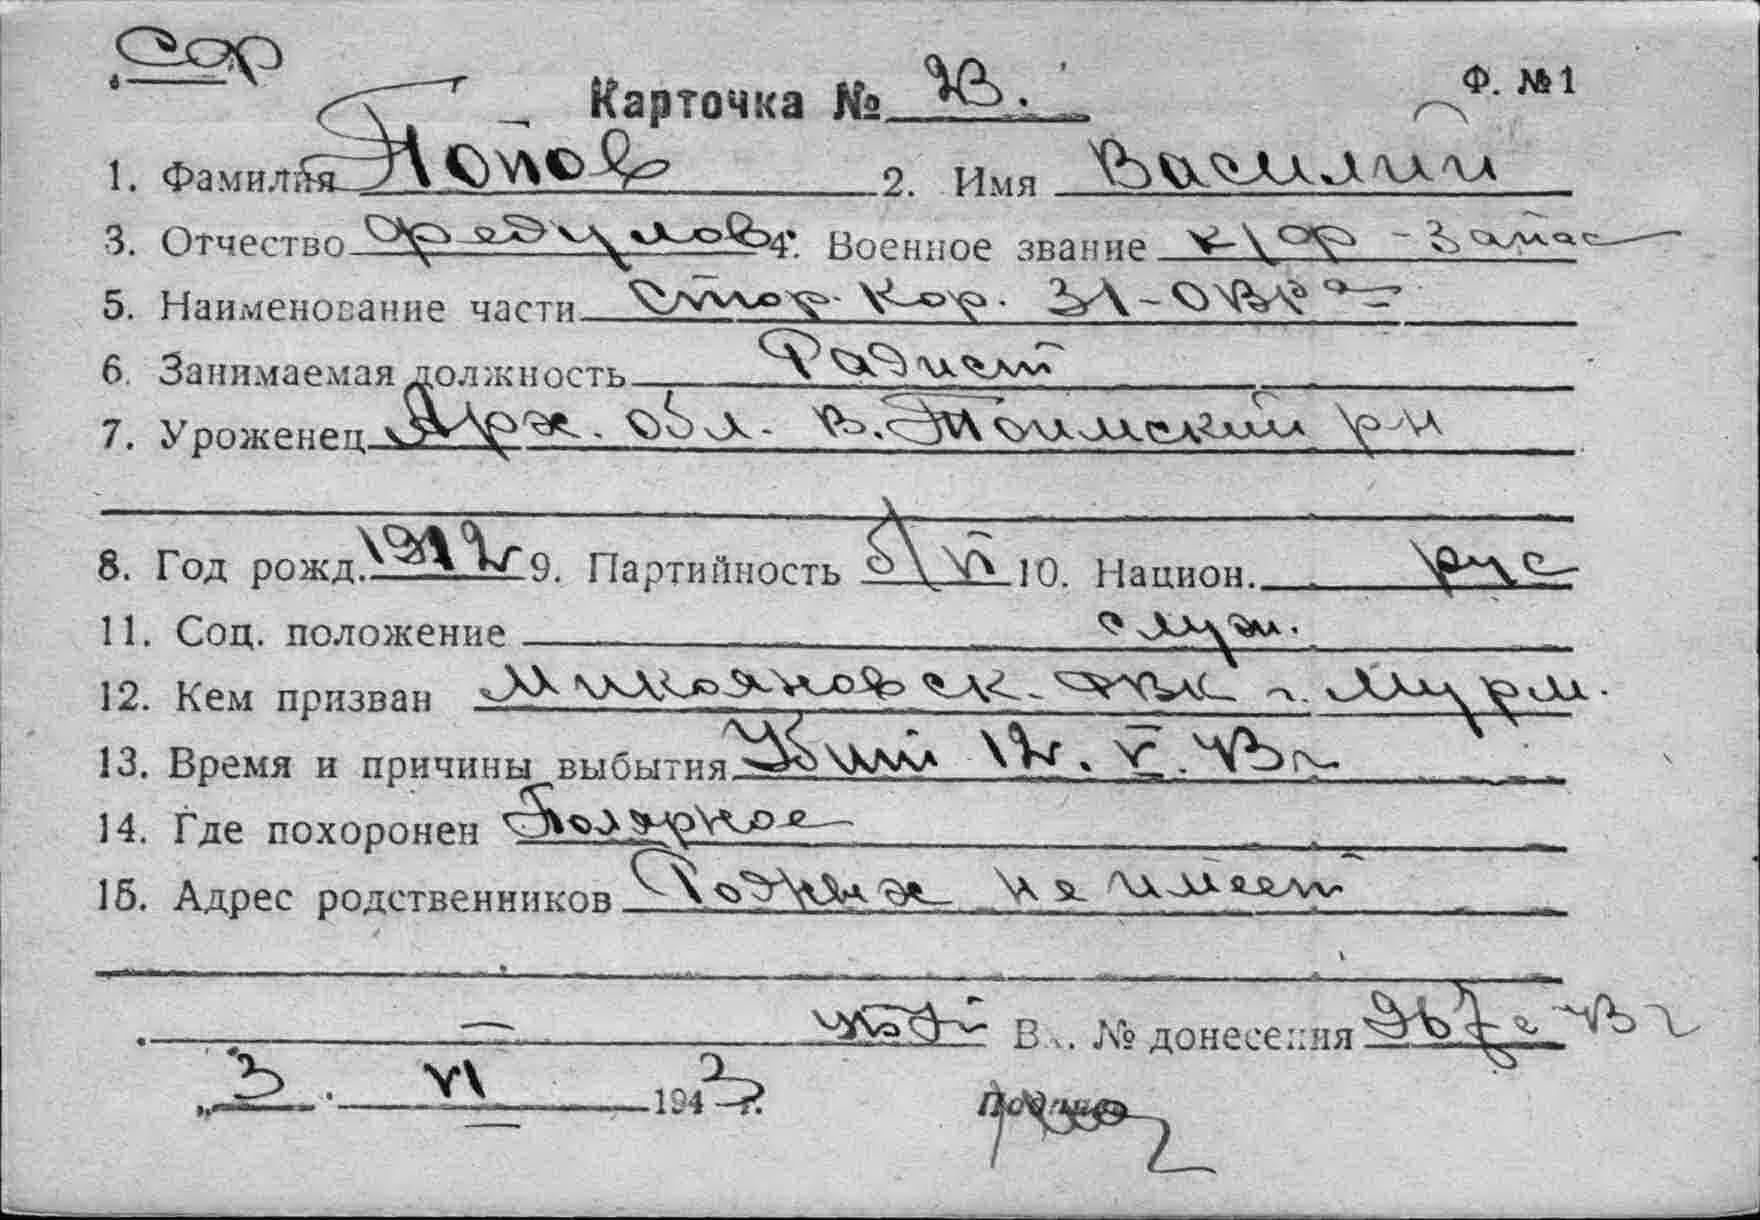 СФ
Карточка № В.
Ф. № 1
1. Фамилия Попов 2. Имя Василий
3. Отчество Федулов 4. Военное звание к/ф - запас
5. Наименование части Стор. Кор. 31-ОВРа
6. Занимаемая должность Радист
7. Уроженец Арх. обл. В.Тоимский р-н
8. Год рожд. 1912г 9. Партийность б/п 10. Национ. рус
11. Соц. положение служ.
12. Кем призван Микояновск. РВК г. Мурм.
13. Время и причины выбытия Убит 12г. V. 43г
14. Где похоронен Полярное
15. Адрес родственников Родных не имеет
Вх. № донесения 967с 43г
„3. VI 1943 г.
Подпись